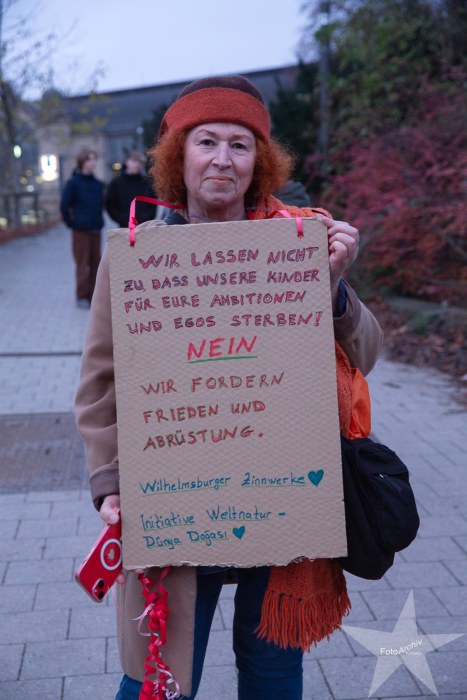 WIR LASSEN NICHT
ZU, DASS UNSERE KINDER
FÜR EURE AMBITIONEN
UND EGOS STERBEN!
NEIN
WIR FORDERN
FRIEDEN UND
ABRÜSTUNG.
Wilhelmsburger Zinnwerke
Initiative Weltnatur –
Dünya Doğası
FotoArchiv